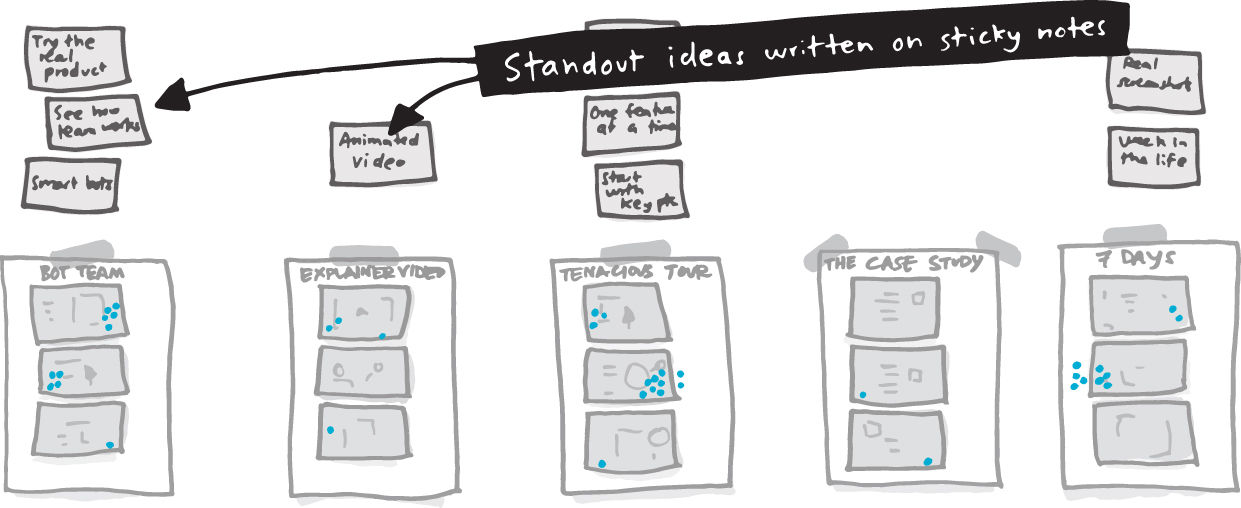 Standout ideas written on sticky notes
Try the
real
product
See how
team works
Smart bots
Animated
video
One feature
at a time
Start
with
key pt.
Real
screenshot
Week in
the life
BOT TEAM
EXPLAINER VIDEO
TENACIOUS TOUR
THE CASE STUDY
7 DAYS